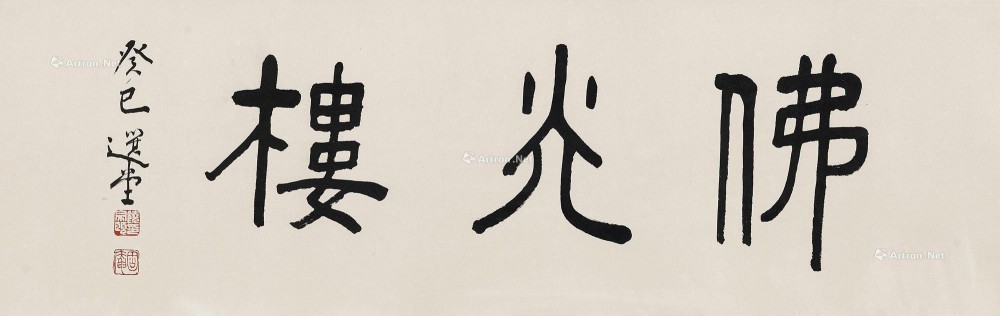 佛光樓
癸巳選堂
Artron.Net
Artron.Net
Artron.Net